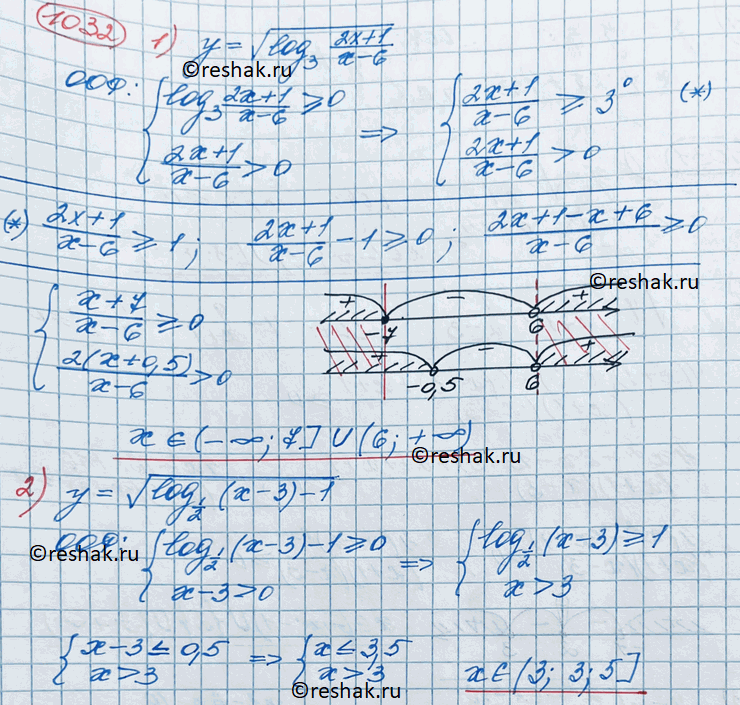 1032 1) y = √(log₃ (2x+1)/(x-6))
©reshak.ru
ООФ: { log₃ (2x+1)/(x-6) ≥ 0 ; (2x+1)/(x-6) > 0 ⇒ { (2x+1)/(x-6) ≥ 3⁰ (*) ; (2x+1)/(x-6) > 0
(*) (2x+1)/(x-6) ≥ 1; (2x+1)/(x-6) - 1 ≥ 0; (2x+1-x+6)/(x-6) ≥ 0
©reshak.ru
{ (x+7)/(x-6) ≥ 0 ; 2(x+0,5)/(x-6) > 0
+ - +
-7 6
+ - +
-0,5 6
x ∈ (-∞; 7] ∪ (6; +∞)
©reshak.ru
2) y = √(log_½ (x-3) - 1)
ООФ: { log_½ (x-3) - 1 ≥ 0 ; x-3 > 0 ⇒ { log_½ (x-3) ≥ 1 ; x > 3
©reshak.ru
{ x-3 ≤ 0,5 ; x > 3 ⇒ { x ≤ 3,5 ; x > 3 x ∈ (3; 3;5]
©reshak.ru